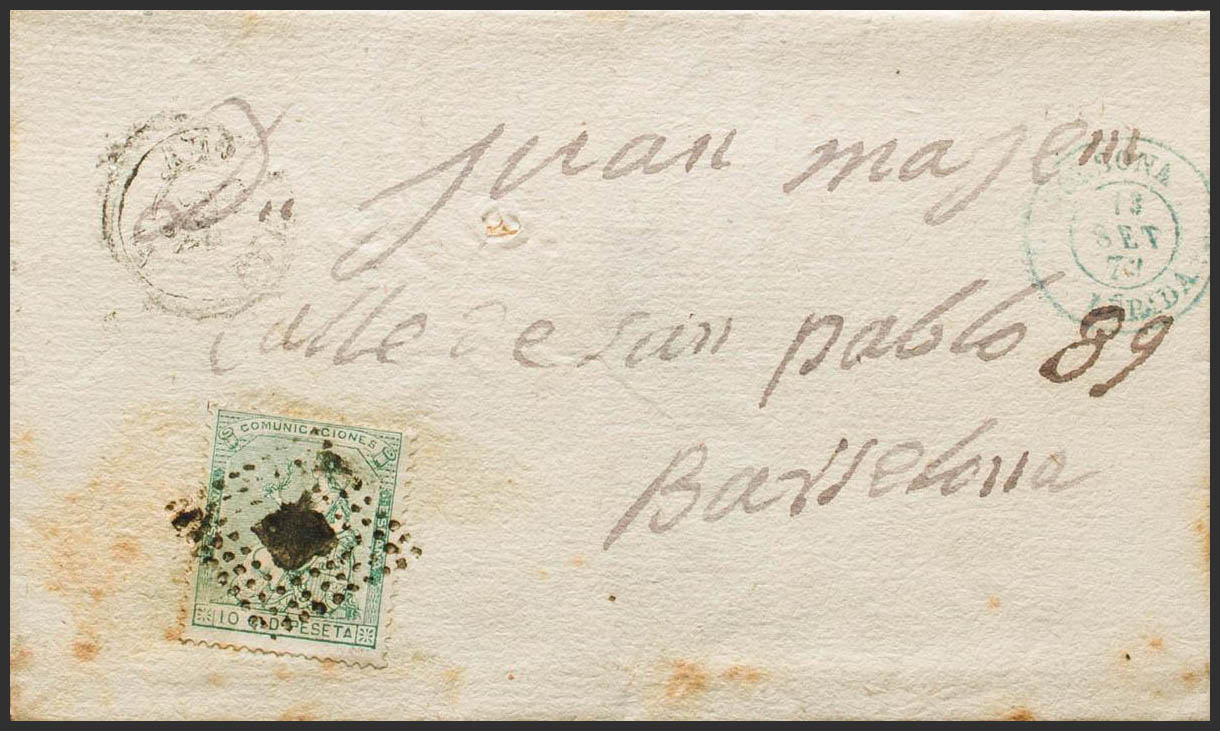 Dn juan majem
Calle de san pablo 89
Barselona
SOLSONA
13
SET
73
LERIDA
COMUNICACIONES
10 Cs D PESETA